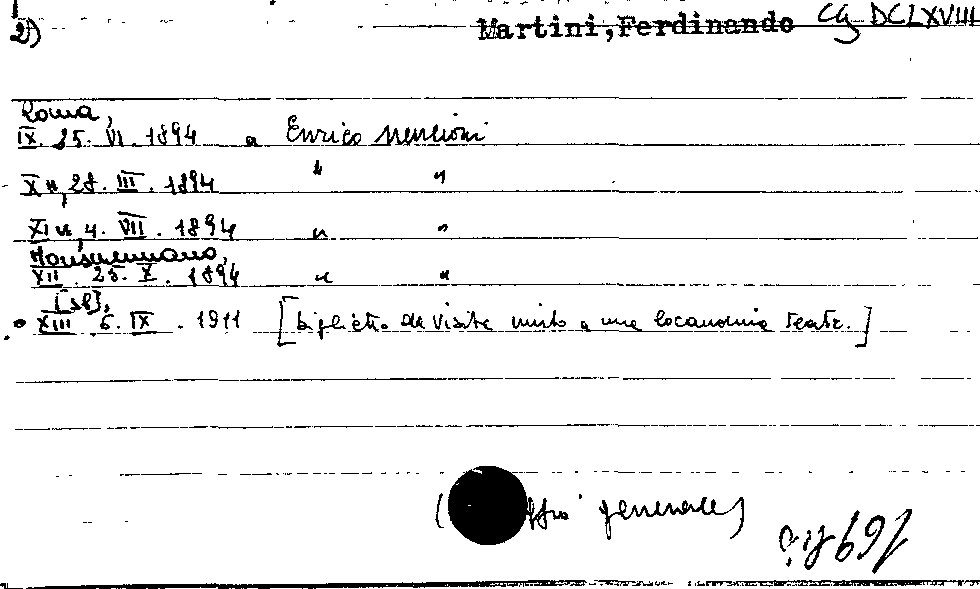 2) Martini,Ferdinando CG DCLXVIII
Roma,
IX. 25. VI. 1894 a Enrico Nencioni
X ", 28. III. 1894 " "
XI ", 4. VII. 1894 " "
Monsummano,
XII. 25. X. 1894 " "
[s.l],
XIII 6. IX. 1911 [biglietto da visita unito a una locandina teatr.]
( generale)